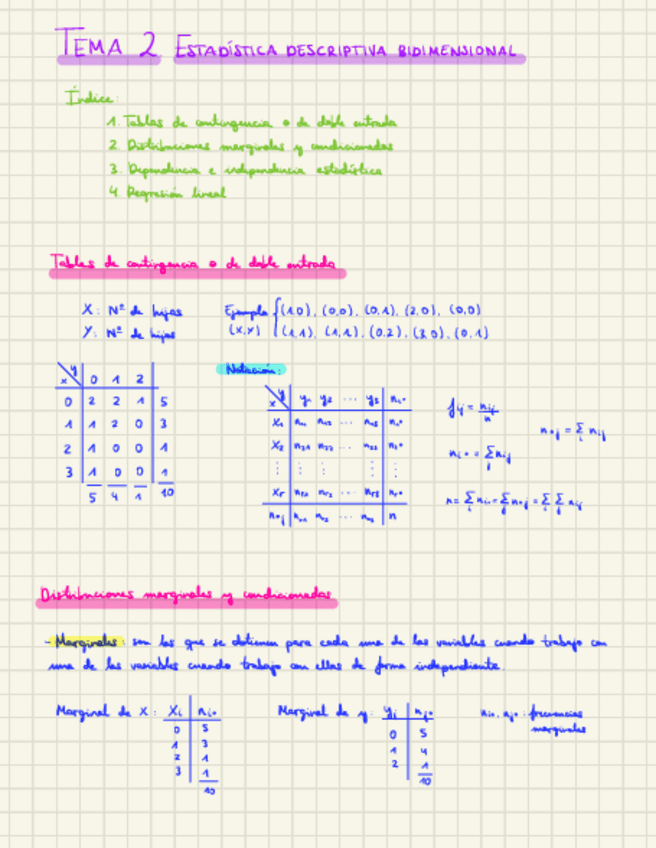 TEMA 2 ESTADÍSTICA DESCRIPTIVA BIDIMENSIONAL
Índice:
1. Tablas de contingencia o de doble entrada
2. Distribuciones marginales y condicionadas
3. Dependencia e independencia estadística
4. Regresión lineal
Tablas de contingencia o de doble entrada
X: Nº de hijas Ejemplo {(1,0), (0,0), (0,1), (2,0), (0,0)
Y: Nº de hijos (x,y) (1,1), (1,1), (0,2), (3,0), (0,1)
Notación:
x\y 0 1 2
0 2 2 1 5
1 1 2 0 3
2 1 0 0 1
3 1 0 0 1
5 4 1 10
x\y y₁ y₂ ... yₛ nᵢ•
x₁ n₁₁ n₁₂ ... n₁ₛ n₁•
x₂ n₂₁ n₂₂ ... n₂ₛ n₂•
⋮ ⋮ ⋮ ⋮ ⋮
xᵣ nᵣ₁ nᵣ₂ ... nᵣₛ nᵣ•
n•j n•₁ n•₂ ... n•ₛ n
fij = nij/n
n•j = Σi nij
ni• = Σj nij
n = Σi ni• = Σj n•j = Σi Σj nij
Distribuciones marginales y condicionadas
- Marginales: son las que se obtienen para cada una de las variables cuando trabajo con
una de las variables cuando trabajo con ellas de forma independiente.
Marginal de X: Xi ni•
0 5
1 3
2 1
3 1
10
Marginal de y: yj n•j
0 5
1 4
2 1
10
ni•, n•j: frecuencias
marginales